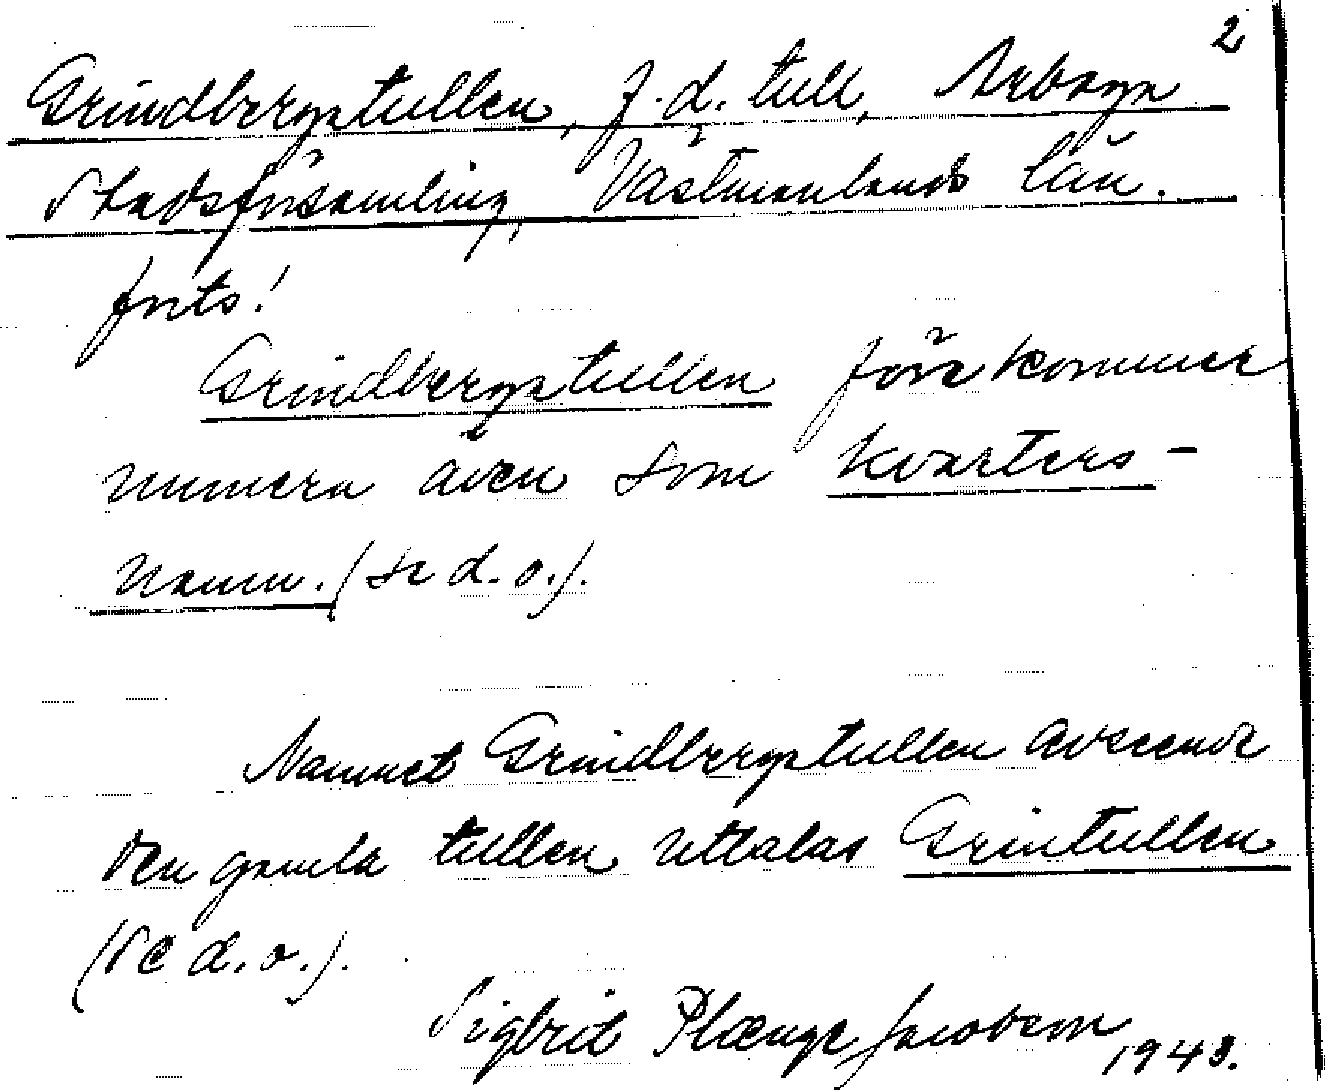 2
Grindbergstullen, f.d. tull, Arboga
Stadsförsamling, Västmanlands län.
forts!
Grindbergstullen förekommer
numera även som kvarters-
namn. (Se d.o.).
Namnet Grindbergstullen avseende
den gamla tullen uttalas Grintullen
(se d.o.).
Sigbrit Plænge Jacobson 1943.